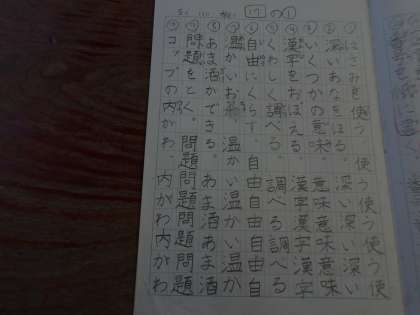 17の①
①はさみを使う。使う使う使う
②深いあなをほる。深い深い深い
③いくつかの意味。意味意味意味
④漢字をおぼえる。漢字漢字漢字
⑤くわしく調べる。調べる調べる
⑥自由にくらす。自由自由自由自
⑦温かいお茶。温かい温かい温か
⑧あま酒ができる。あま酒あま酒
⑨問題をとく。問題問題問題問題
⑩コップの内がわ。内がわ内がわ